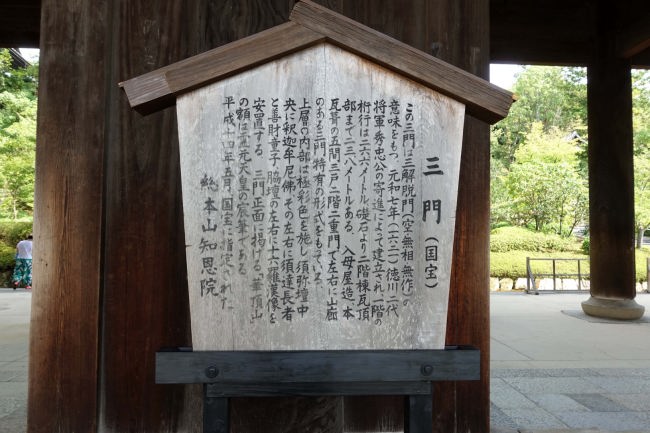 三門(国宝)
この三門は三解脱門(空・無相・無作)の
意味をもつ 元和七年(一六二一)徳川二代
将軍秀忠公の寄進によって建立され 一階の
桁行は二六・六メートル 礎石より二階棟瓦頂
部まで二三・八メートルある、入母屋造、本
瓦葺の五間三戸二階二重門で左右に山廊
のある三門特有の形式をもっている。
上層の内部は極彩色を施し須弥壇中
央に釈迦牟尼佛 その左右に須達長者
と善財童子 脇壇の左右に十六羅漢像を
安置する 三門正面に掲げる「華頂山」
の額は霊元天皇の宸筆である
平成十四年五月、国宝に指定された
総本山知恩院